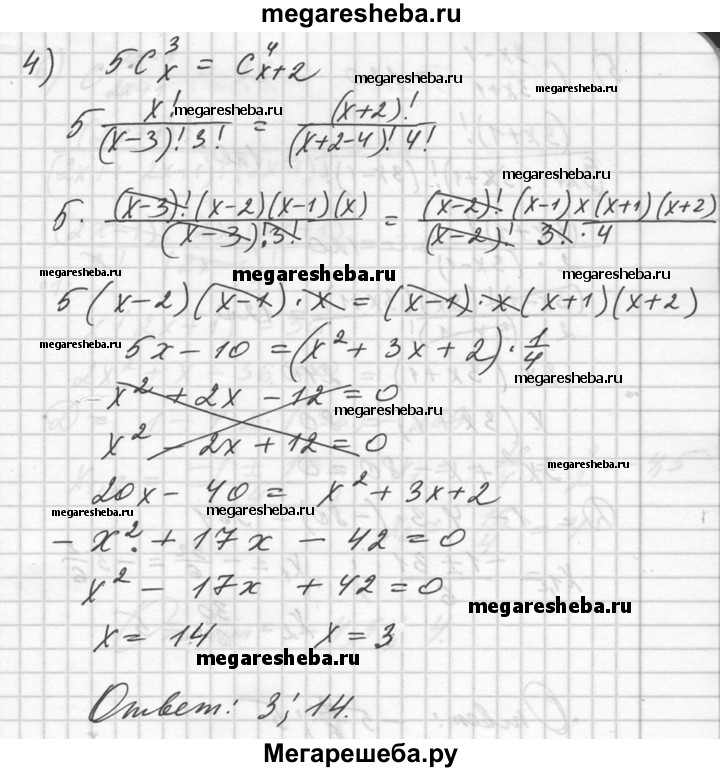 megaresheba.ru
4) 5C³ₓ = C⁴ₓ₊₂
megaresheba.ru megaresheba.ru
5 x!/((x-3)! 3!) = (x+2)!/((x+2-4)! 4!)
megaresheba.ru
megaresheba.ru
5 · ((x-3)! (x-2)(x-1)(x))/((x-3)! 3!) = ((x-2)! (x-1)x(x+1)(x+2))/((x-2)! 3! · 4)
megaresheba.ru megaresheba.ru megaresheba.ru
5(x-2)(x-1)·x = (x-1)·x(x+1)(x+2)
megaresheba.ru 5x - 10 = (x² + 3x + 2) · 1/4
megaresheba.ru
x² + 2x - 12 = 0
megaresheba.ru
x² - 2x + 12 = 0
megaresheba.ru
20x - 40 = x² + 3x + 2
megaresheba.ru megaresheba.ru
- x² + 17x - 42 = 0
x² - 17x + 42 = 0
megaresheba.ru
x = 14 x = 3
megaresheba.ru
Ответ: 3; 14.
Мегарешеба.ру